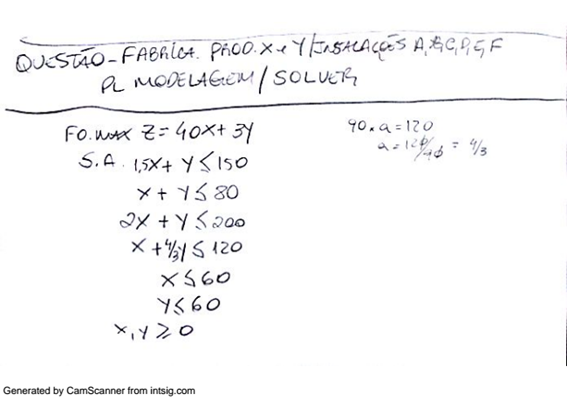 QUESTÃO - FABRICA PROD. X e Y / INSTALAÇÕES A, B, C, D, E, F
PL MODELAGEM / SOLVER
FO. MAX Z = 40X + 3Y
S.A. 1,5X + Y ≤ 150
X + Y ≤ 80
2X + Y ≤ 200
X + 4/3Y ≤ 120
X ≤ 60
Y ≤ 60
X, Y ≥ 0
90 . a = 120
a = 120/90 = 4/3
Generated by CamScanner from intsig.com